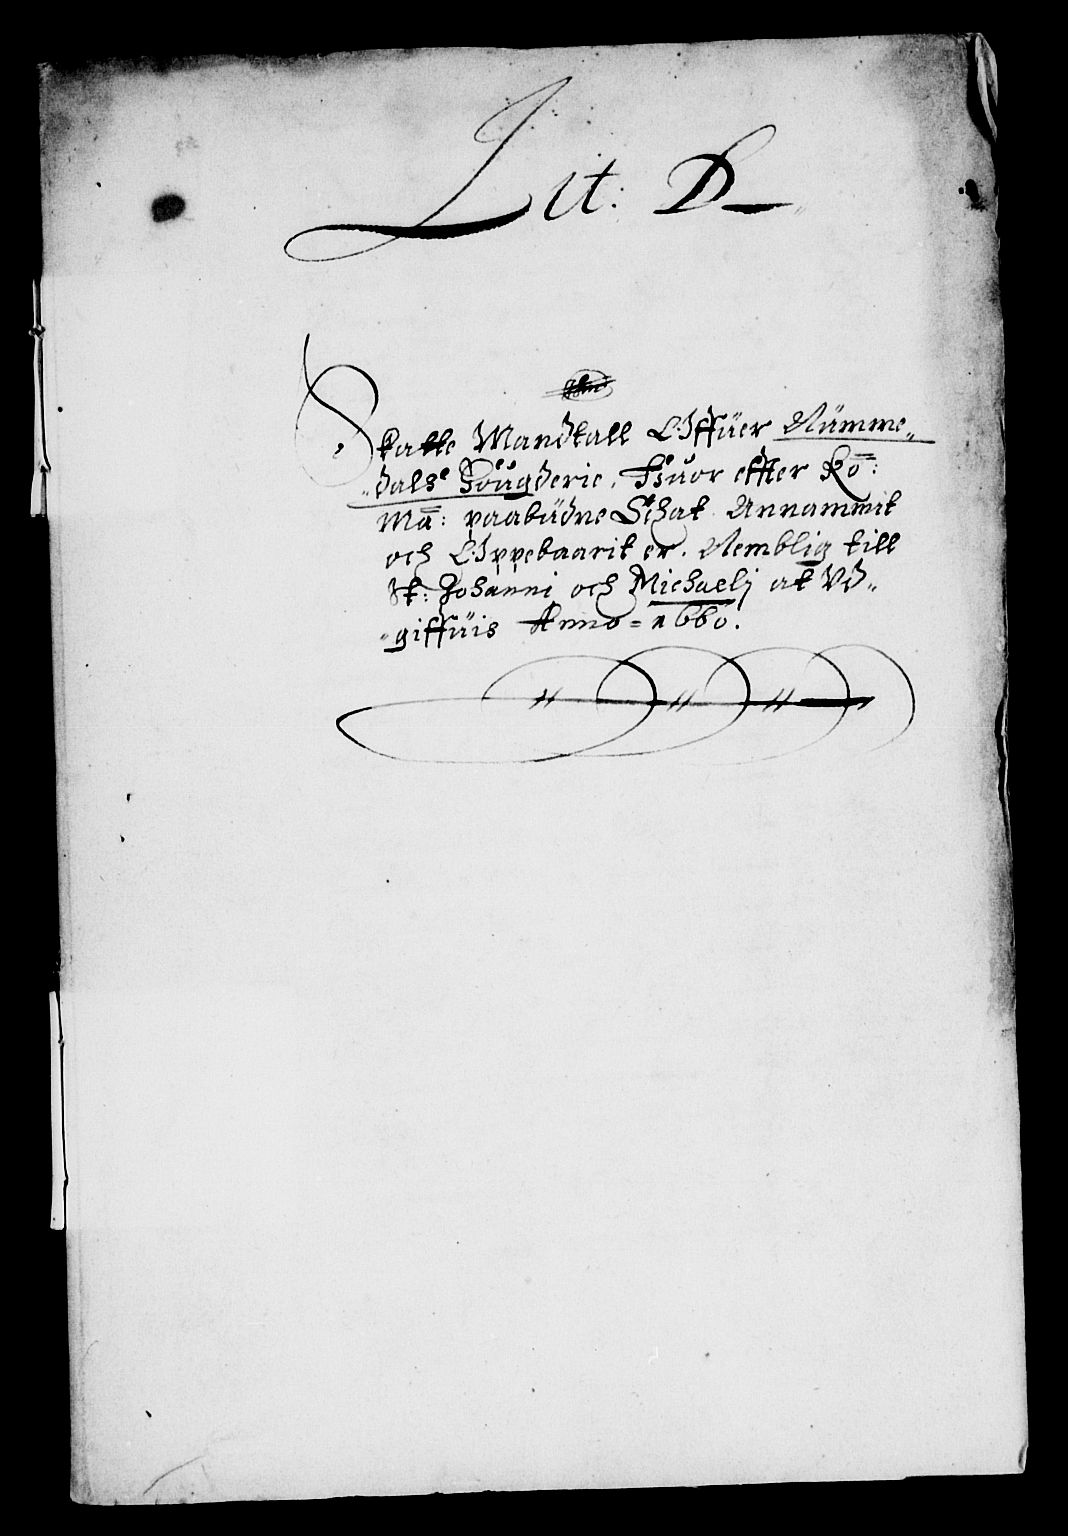 Lit: D
Skatte Mandtall Offuer Nümme„
„dals Fougderie, Huor effter Ko:
Ma: paabüdne Schat Annammit
och Oppebaarit er. Nemblig till
St: Johanni och Michaelj at Vd„
„giffuis Anno = 1660.